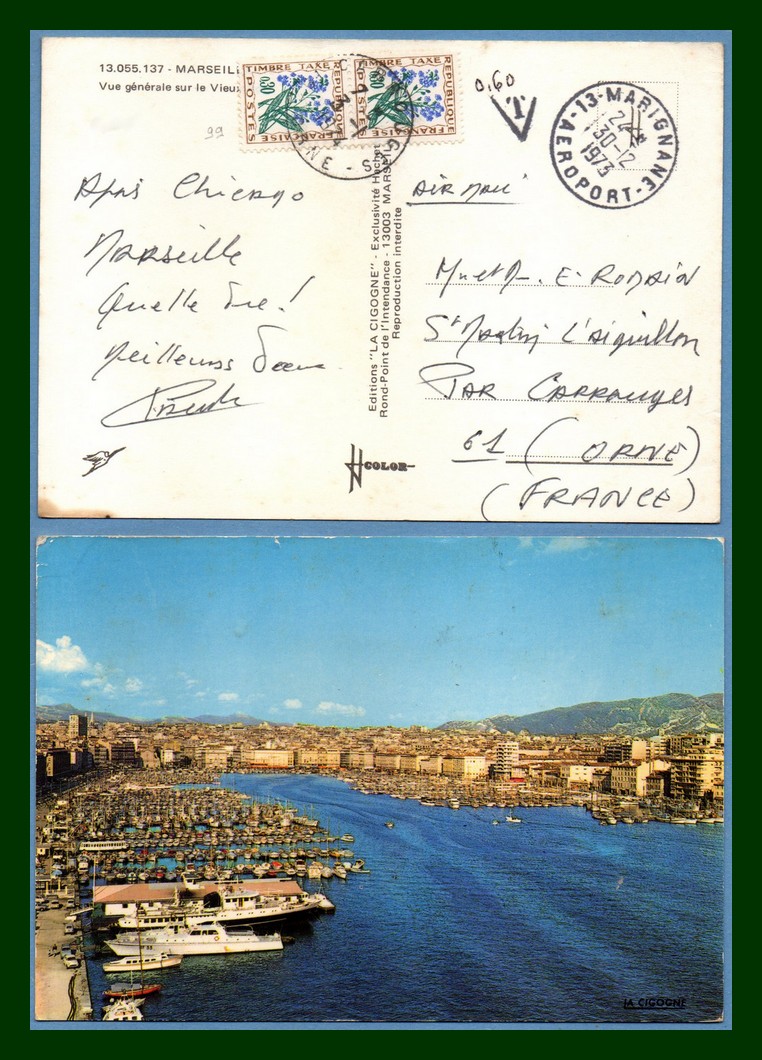 13.055.137 - MARSEIL
Vue générale sur le Vieux
99
TIMBRE TAXE
REPUBLIQUE FRANÇAISE
POSTES
0,20
TIMBRE TAXE
REPUBLIQUE FRANÇAISE
POSTES
0,60
T
13-MARIGNANE
24 H
30-12
1973
AEROPORT
Après Chicago
Marseille
Quelle vie !
Meilleurs
AIR MAIL
E. ROMAIN
St Martin L'Aiguillon
PAR CARROUGES
61 (ORNE)
(FRANCE)
Editions "LA CIGOGNE" - Exclusivité Hachet
Rond-Point de l'Intendance - 13003 MARSEIL
Reproduction interdite
COLOR
LA CIGOGNE